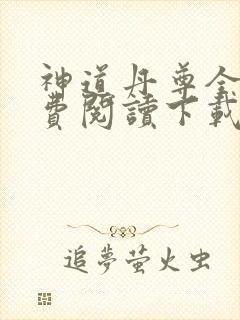 神道丹尊全
費閱讀下載
追夢萤火虫